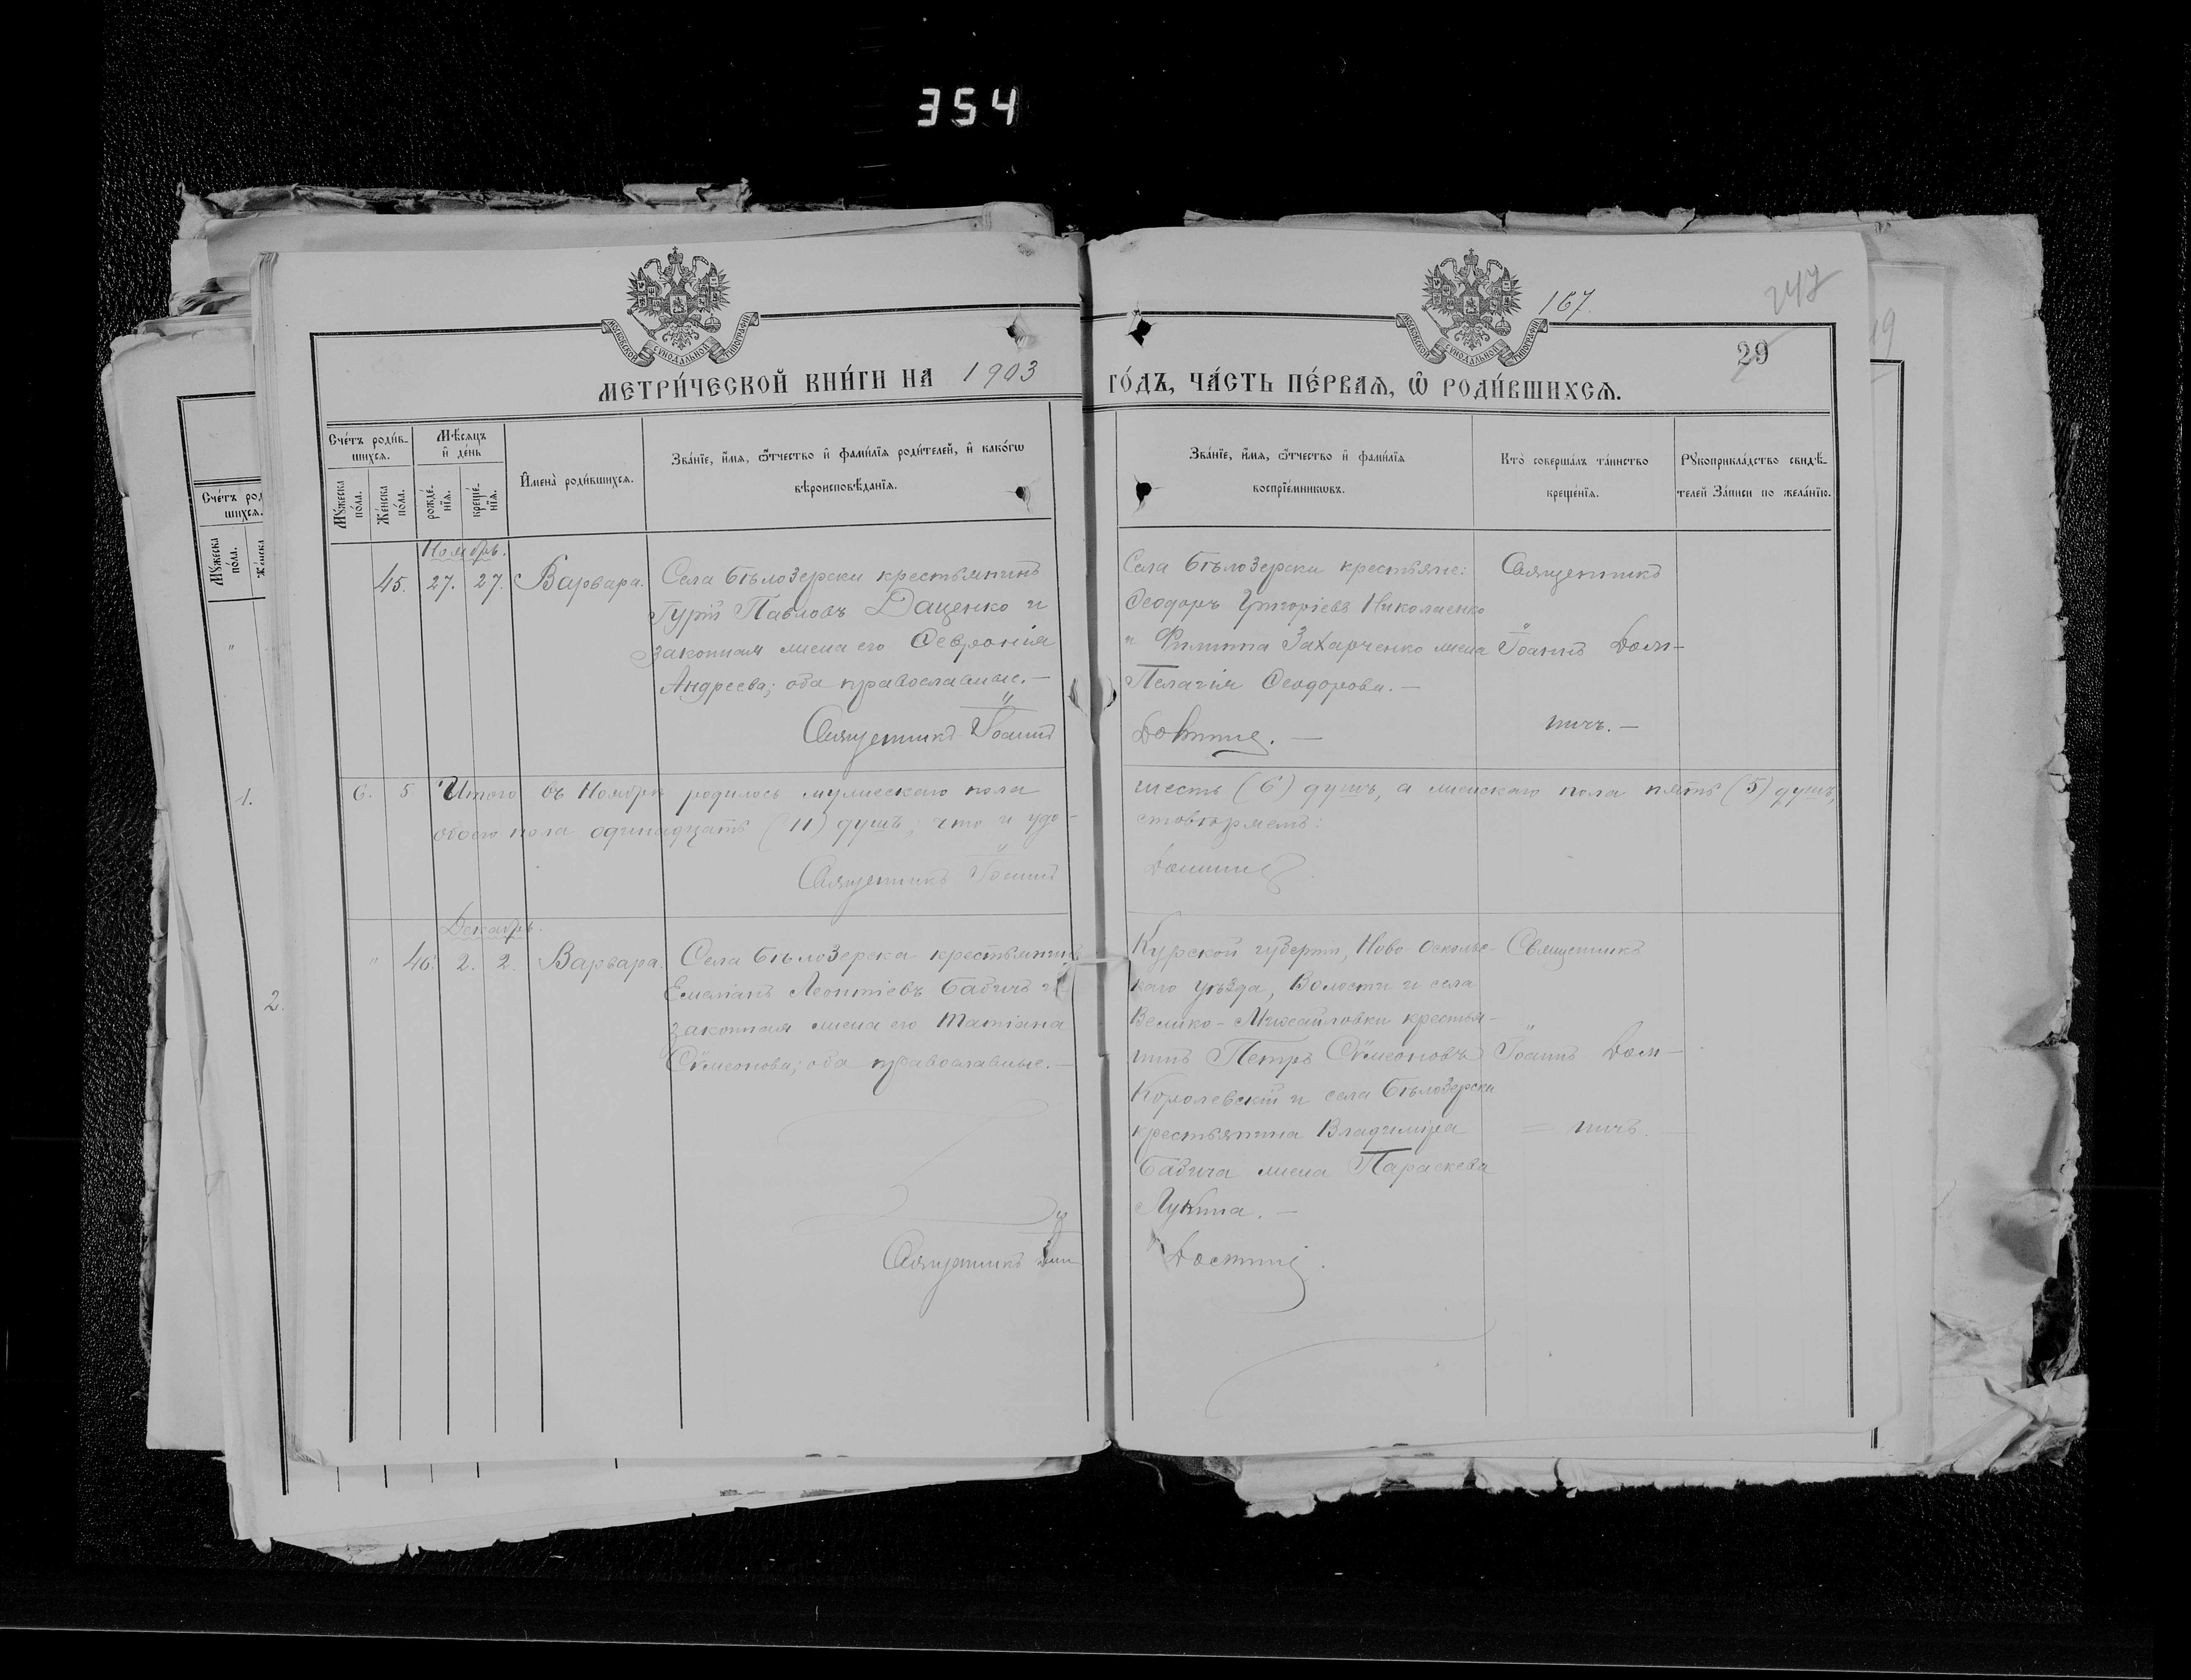 354
167.
247
29
19
МОСКОВСКОЙ СѴНОДАЛЬНОЙ ТИПОГРАФІИ
МОСКОВСКОЙ СѴНОДАЛЬНОЙ ТИПОГРАФІИ
МЕТРИ́ЧЕСКОЙ КНИ́ГИ НА 1903 ГО́ДЪ, ЧА́СТЬ ПЕ́РВАѦ, Ѽ РОДИ́ВШИХСѦ.
Сче́тъ роди́в-
шихсѧ.
Мꙋ́жеска по́ла.
Же́нска по́ла.
Мѣ́сѧцъ и҆ де́нь
рожде́-нїѧ.
креще́-нїѧ.
И҆мена̀ роди́вшихсѧ.
Зва́нїе, и҆́мѧ, ѻ҆́тчество и҆ фами́лїѧ роди́телей, и҆ како́гѡ
вѣроисповѣ́данїѧ.
Зва́нїе, и҆́мѧ, ѻ҆́тчество и҆ фами́лїѧ
воспрїе́мникѡвъ.
Кто̀ соверша́лъ та́инство
креще́нїѧ.
Рꙋкоприкла́дство свидѣ́-
телей за́писи по жела́нїю.
Ноябрь.
45. 27. 27. Варвара.
Села Бѣлозерки крестьянинъ
Гурій Павловъ Даценко и
законная жена его Февронія
Андреева; оба православные. —
Священникъ Іоаннъ
Села Бѣлозерки крестьяне:
Ѳеодоръ Григоріевъ Николаенко
и Филиппа Захарченко жена
Пелагія Ѳеодорова. —
Священникъ
Іоаннъ Дом-
ничъ. —
6. 5 Итого въ Ноябрѣ родилось мужескаго пола шесть (6) душъ, а женскаго пола пять (5) душъ,
обоего пола одинадцать (11) душъ; что и удо-
стовѣряетъ:
Священникъ Іоаннъ
Декабрь.
" 46. 2. 2. Варвара.
Села Бѣлозерки крестьянинъ
Емеліанъ Леонтіевъ Бабичъ и
законная жена его Татіана
Сѵмеонова; оба православные. —
Священникъ
Курской губерніи, Ново-Осколь-
каго уѣзда, Волости и села
Велико-Михайловки крестья-
нинъ Петръ Сѵмеоновъ
Королевскій и села Бѣлозерки
крестьянина Владиміра
Бабича жена Параскева
Лукина. —
Священникъ
Іоаннъ Дом-
ничъ. —
Сче́тъ род
шихсѧ.
Мꙋ́жеска по́ла.
1.
2.